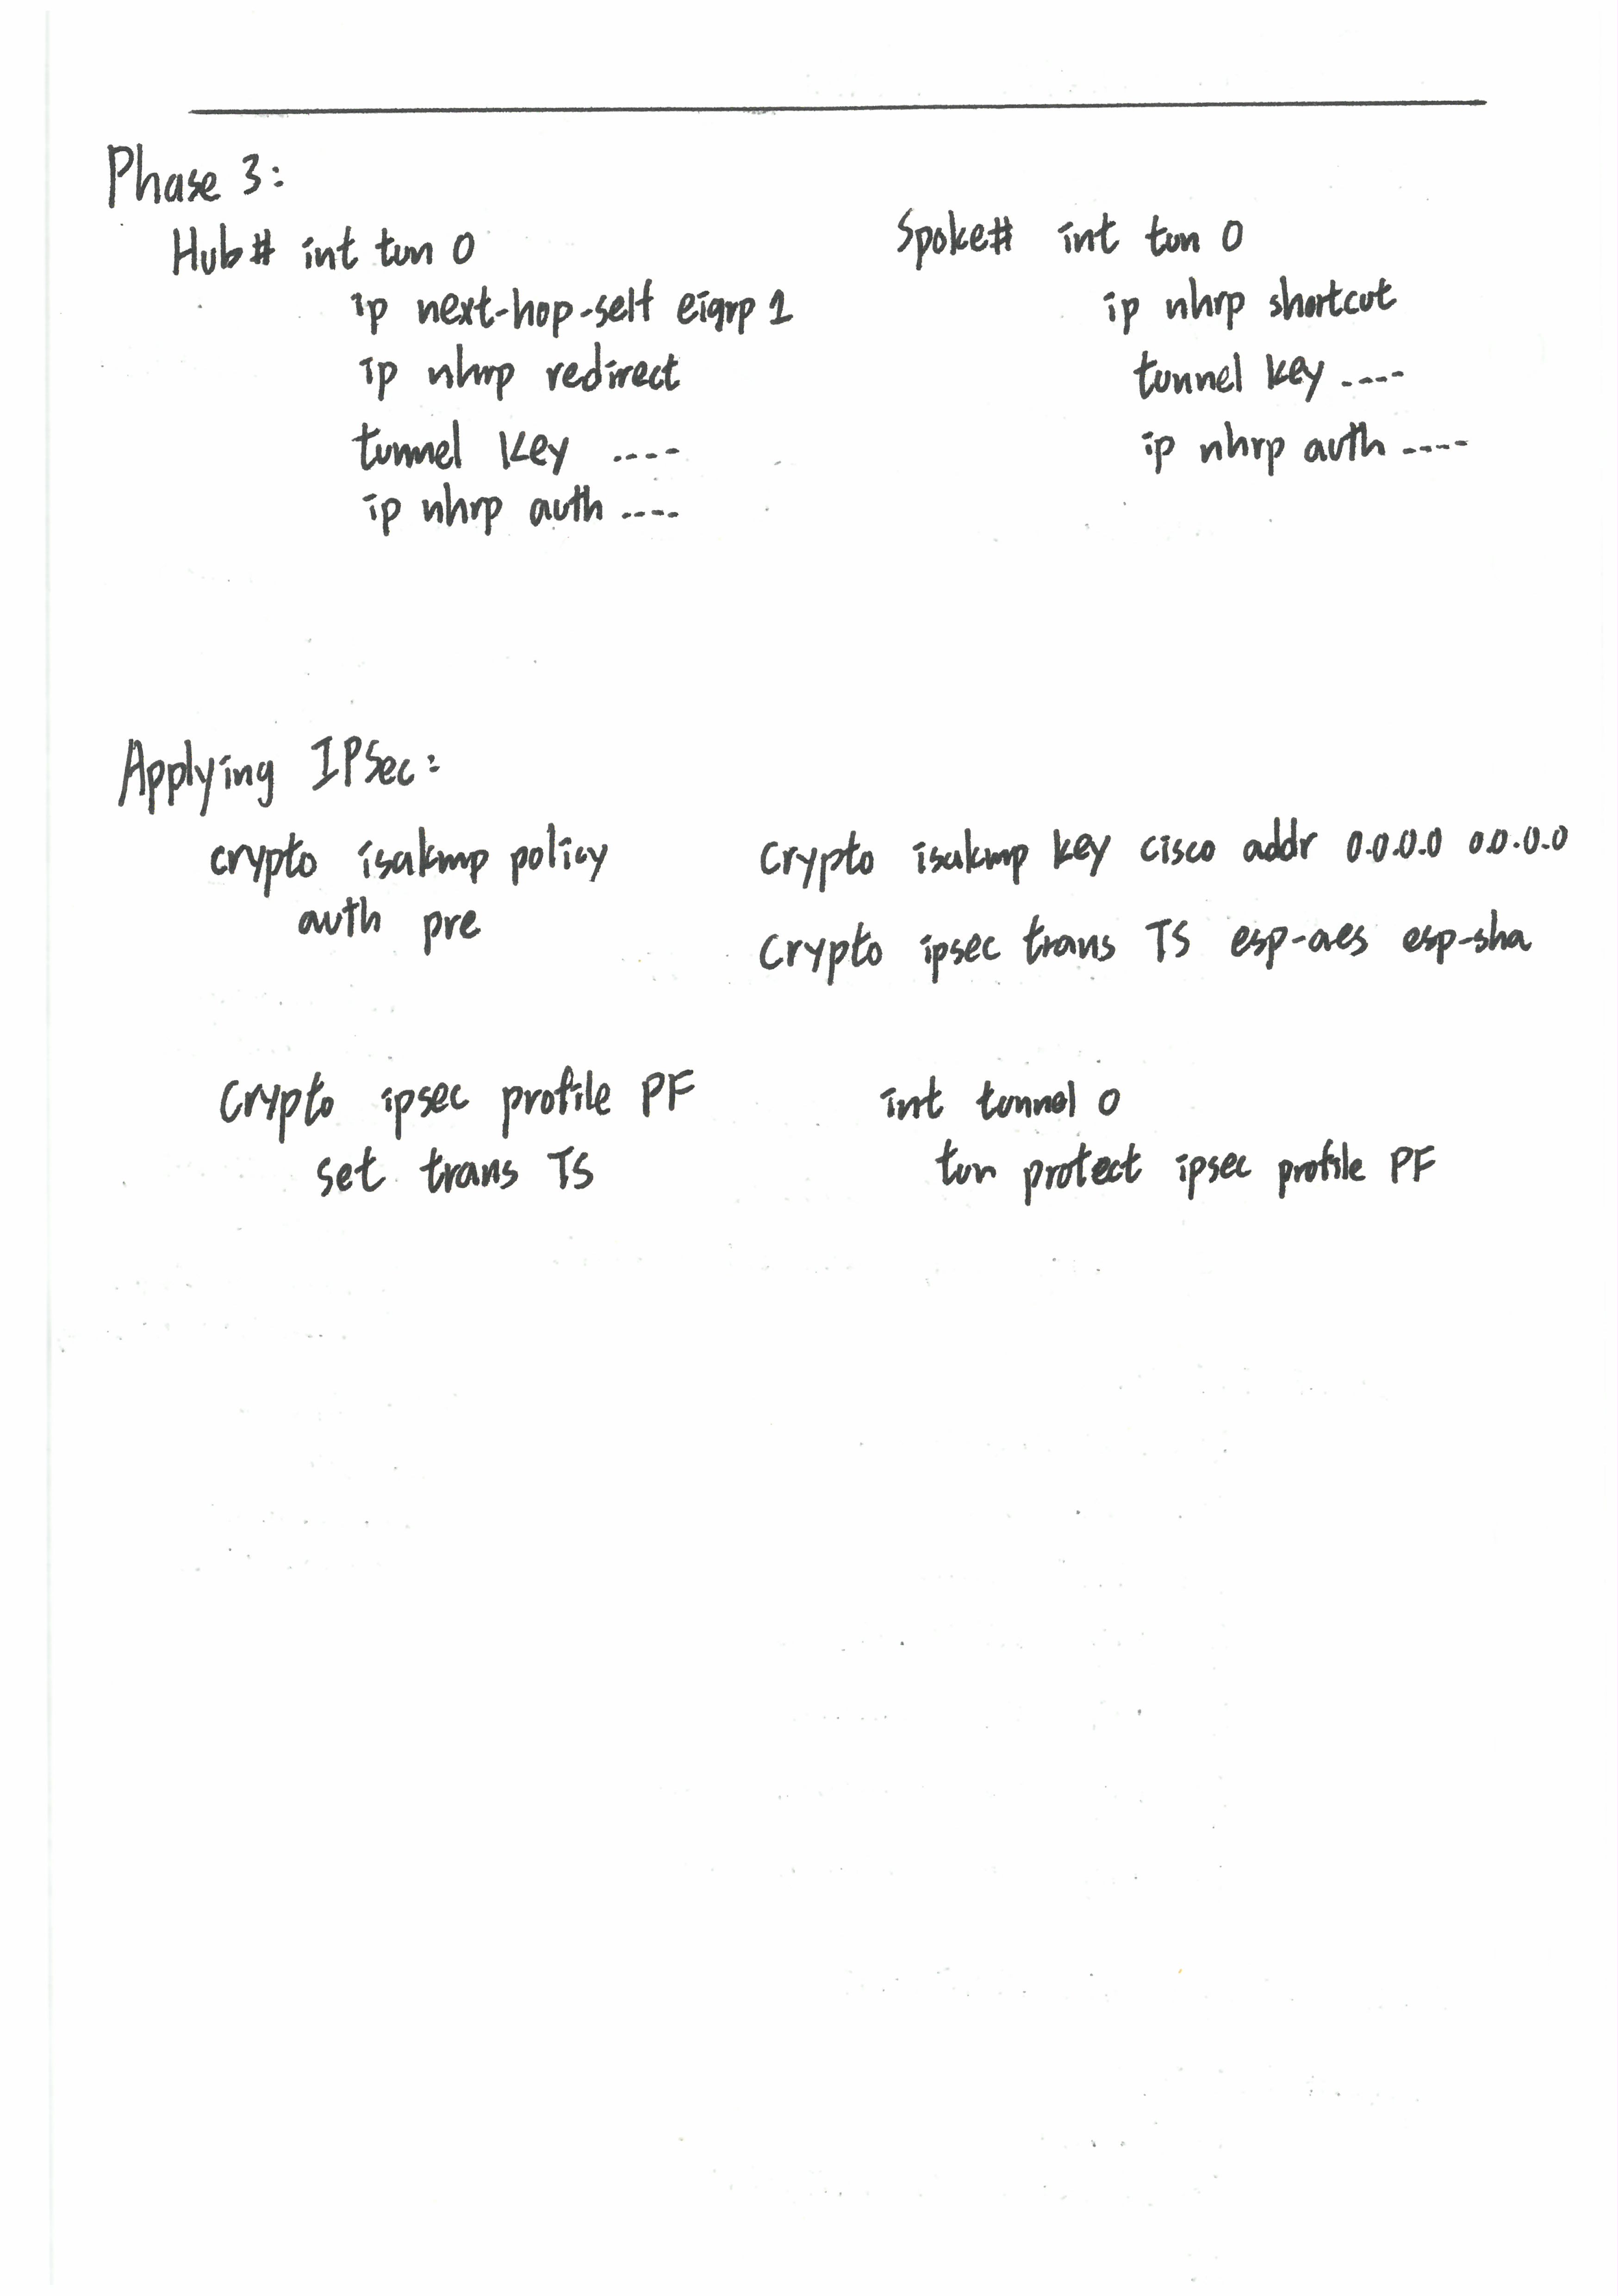 Phase 3:
Hub# int tun 0
ip next-hop-self eigrp 1
ip nhrp redirect
tunnel key ----
ip nhrp auth ----
Spoke# int tun 0
ip nhrp shortcut
tunnel key ----
ip nhrp auth ----
Applying IPSec:
crypto isakmp policy
auth pre
Crypto isakmp key cisco addr 0.0.0.0 0.0.0.0
Crypto ipsec trans TS esp-aes esp-sha
Crypto ipsec profile PF
set trans TS
int tunnel 0
tun protect ipsec profile PF